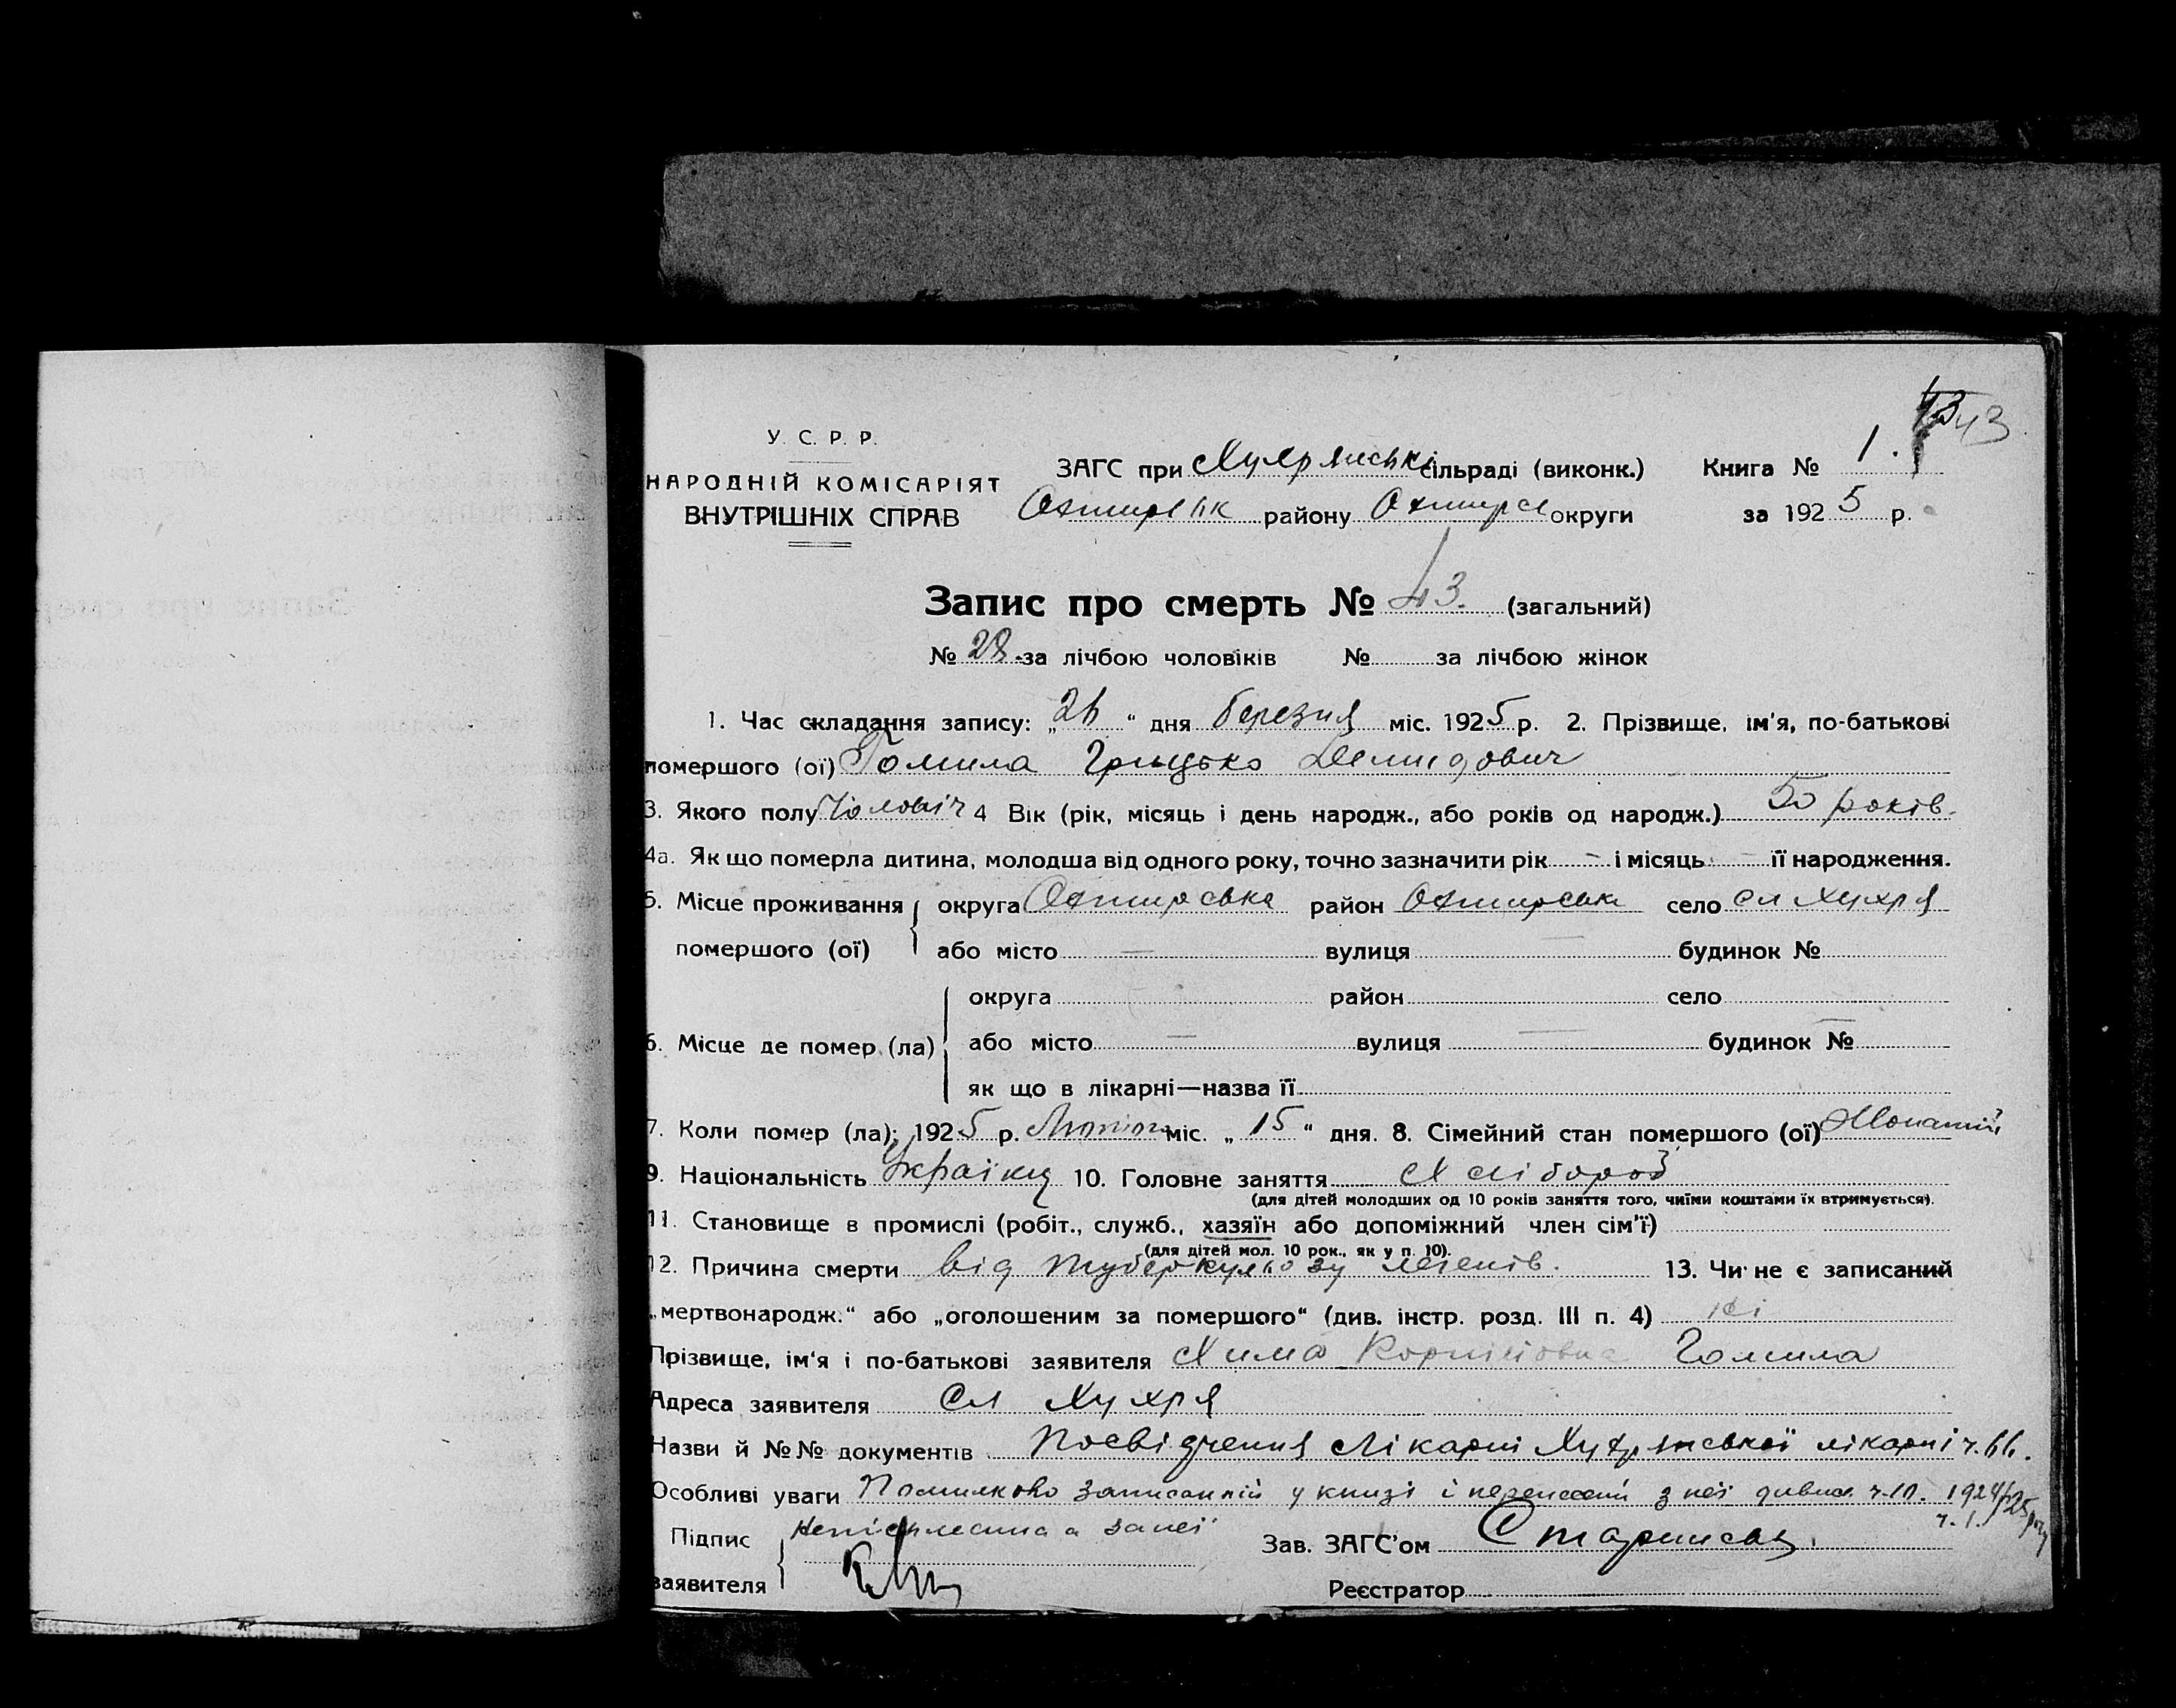 43
У. С. Р. Р.
НАРОДНІЙ КОМІСАРІЯТ
ВНУТРІШНІХ СПРАВ
ЗАГС при Хухрянські сільраді (виконк.) Книга № 1.
Охтирськ району Охтирс округи за 1925 р.
Запис про смерть № 43. (загальний)
№ 28 за лічбою чоловіків № за лічбою жінок
1. Час складання запису: „26“ дня березня міс. 1925 р. 2. Прізвище, ім'я, по-батькові
помершого (ої) Гомила Грицько Демидович
3. Якого полу Чоловіч 4 Вік (рік, місяць і день народж., або років од народж.) 50 років.
4а. Як що померла дитина, молодша від одного року, точно зазначити рік - і місяць - її народження.
5. Місце проживання округа Охтирська район Охтирськ село сл Хухря
помершого (ої) або місто — вулиця — будинок №
округа район село
6. Місце де помер (ла) або місто — вулиця — будинок № —
як що в лікарні—назва її
7. Коли помер (ла): 1925 р. Лютого міс. „15“ дня. 8. Сімейний стан помершого (ої) Жонатий
9. Національність Українц 10. Головне заняття Хлібороб
(для дітей молодших од 10 років заняття того, чиїми коштами їх втримується).
11. Становище в промислі (робіт., служб., хазяїн або допоміжний член сім'ї)
(для дітей мол. 10 рок., як у п. 10).
12. Причина смерти від туберкульозу легенів. 13. Чи не є записаний
„мертвонародж.“ або „оголошеним за помершого“ (див. інстр. розд. III п. 4) ні
Прізвище, ім'я і по-батькові заявителя Хима Гомила
Адреса заявителя Сл Хухря
Назви й №№ документів Посвідчення Лікарні Хухрянської лікарні ч. 66.
Особливі уваги Помилково записаний у книзі і перенесений з неї ч. 10. 1924/25 року
ч. 1.
Підпис Неписьменна а за неї Зав. ЗАГС'ом
заявителя Реєстратор